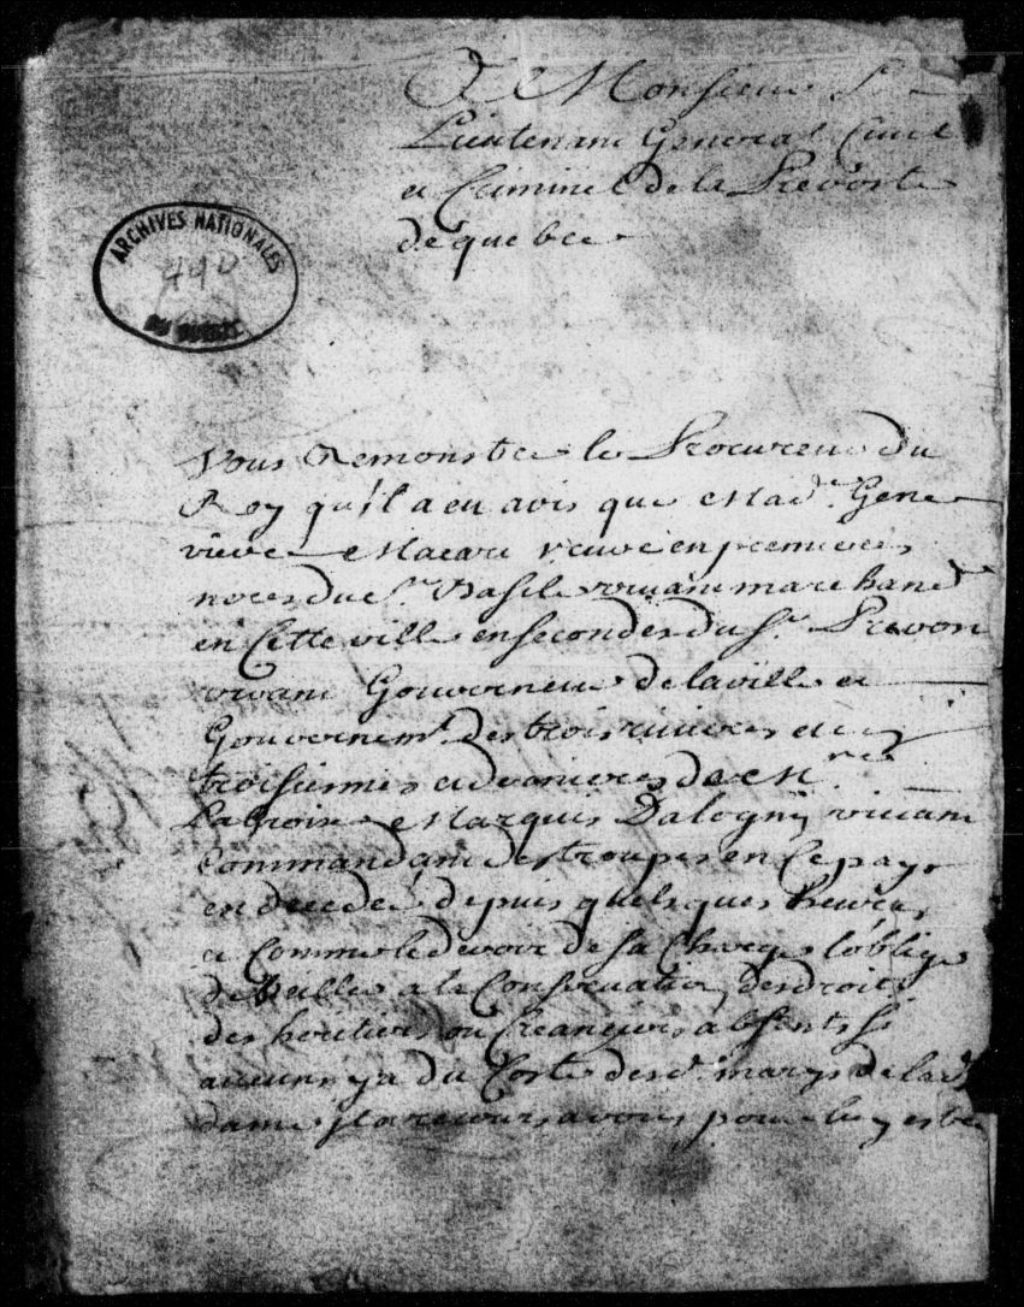 A Monsieur Le
Lieutenant General Civil
et Criminel de la Prevosté
de quebec
ARCHIVES NATIONALES
490
DU QUEBEC
Vous Remonstre le Procureur du
Roy qu'il a eu avis que Mad.e Gene
vieve Macare veuve en premieres
noces du S.r Basile vivant marchand
en Cette ville en secondes du S.r Provon
vivant Gouverneur de la ville et
Gouvernem.t des trois rivieres et en
troisiesmes et dernieres de M.re
Lacroix Marquis Dalogny vivant
Commandant des troupes en Ce pays
en decedée depuis quelques heures,
et Comme le devoir de sa Charge l'oblige
de Veiller a la Conservation des droits
des heritiers ou Creanciers absents Si
aucuns y a du Costé desd. marys de lad.
dame Il a recours a vous pour luy estre